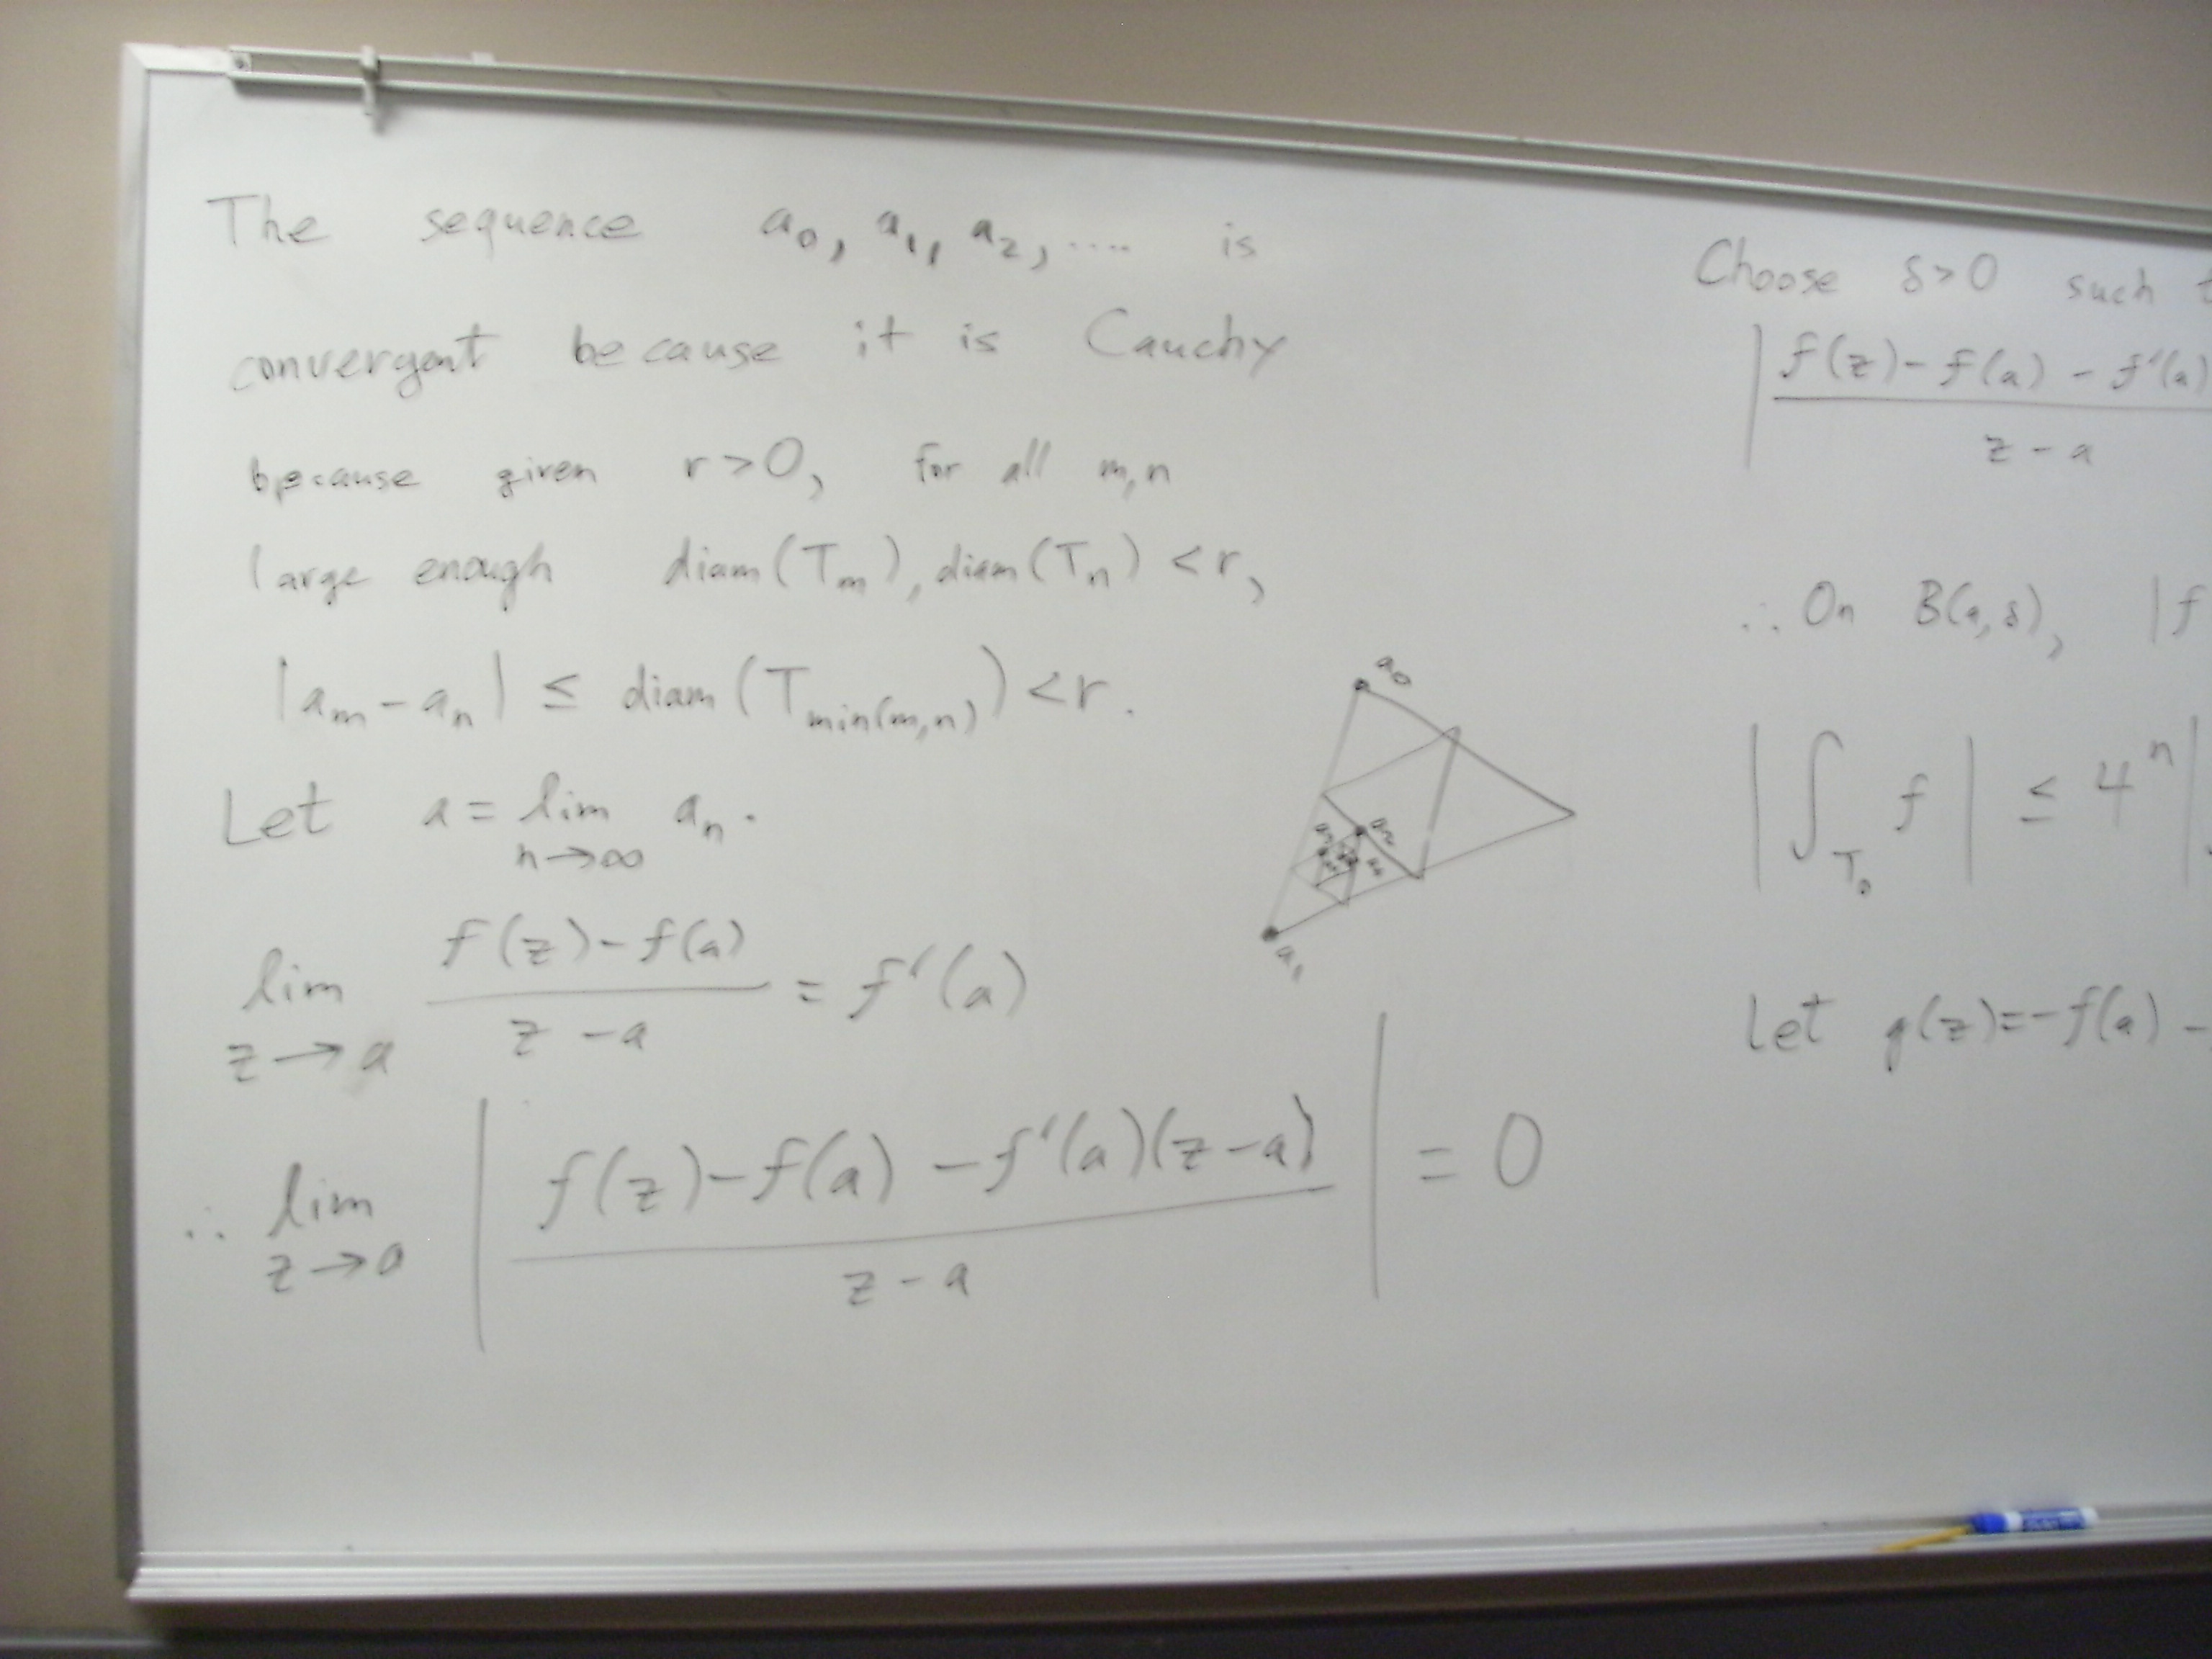 The sequence a₀, a₁, a₂, .... is
convergent because it is Cauchy
because given r>0, for all m,n
large enough diam(Tₘ), diam(Tₙ) <r,
|aₘ-aₙ| ≤ diam(T_min(m,n)) <r.
Let a = lim aₙ.
n→∞
lim f(z)-f(a) / z-a = f'(a)
z→a
∴ lim | f(z)-f(a) -f'(a)(z-a) / z-a | = 0
z→a
a₀
a₂
a₁
Choose δ>0 such
| f(z)-f(a) - f'(a) / z-a
∴ On B(a,δ), |f
| ∫_T₀ f | ≤ 4ⁿ |
Let g(z)=-f(a) -